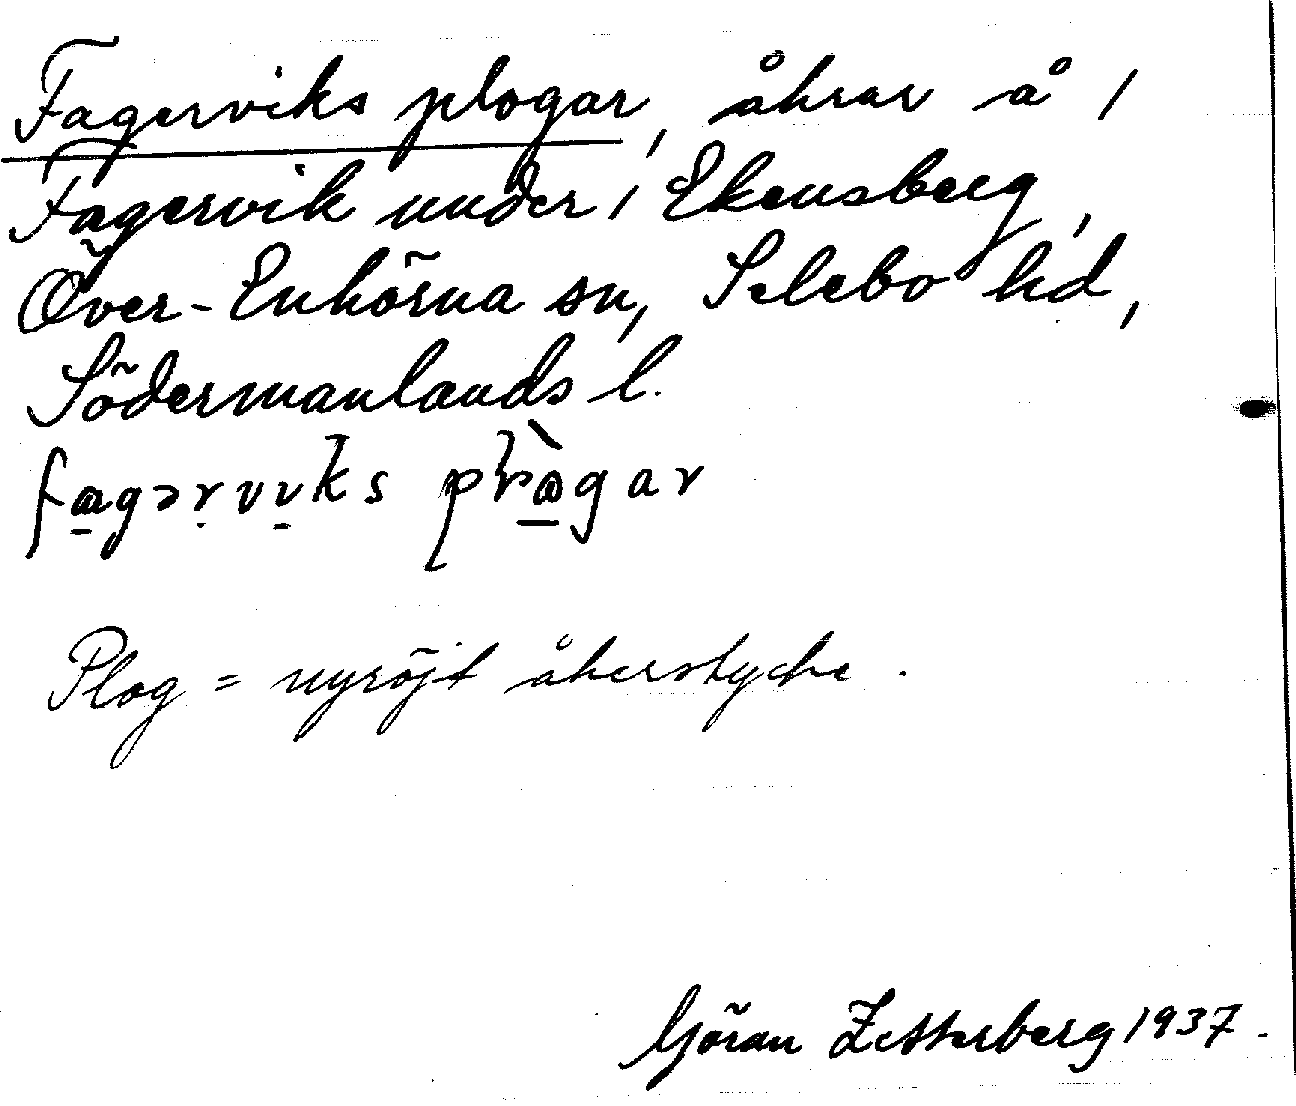 Fagerviks plogar, åkrar å /
Fagervik under / Ekensberg,
Över-Enhörna sn, Selebo hd,
Södermanlands l.
Plog = nyröjt åkerstycke.
Göran Zetterberg 1937.